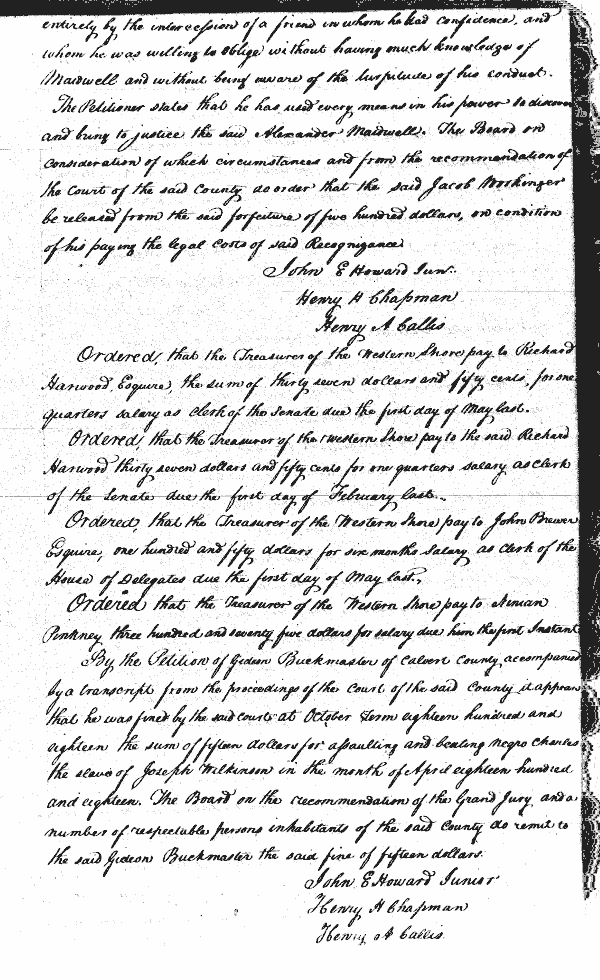 entirely by the intercession of a friend in whom he had confidence, and
whom he was willing to oblige without having much knowledge of
Maidwell and without being aware of the turpitude of his conduct.
The Petitioner states that he has used every means in his power to discover
and bring to justice the said Alexander Maidwell. The Board on
consideration of which circumstances and from the recommendation of
the Court of the said County do order that the said Jacob
be released from the said forfeiture of five hundred dollars, on condition
of his paying the legal costs of said Recognizance
John E Howard Jun.
Henry H Chapman
Henry A Callis
Ordered, that the Treasurer of the Western Shore pay to Richard
Harwood Esquire, the sum of thirty seven dollars and fifty cents, for one
quarters salary as Clerk of the Senate due the first day of May last.
Ordered, that the Treasurer of the Western Shore pay to the said Richard
Harwood thirty seven dollars and fifty cents for one quarters salary as clerk
of the Senate due the first day of February last.
Ordered, that the Treasurer of the Western Shore pay to John Brewer
Esquire, one hundred and fifty dollars for six months salary as Clerk of the
House of Delegates due the first day of May last.
Ordered that the Treasurer of the Western Shore pay to Ninian
Pinkney three hundred and seventy five dollars for salary due him the first Instant
By the Petition of Gideon Buckmaster of Calvert County, accompanied
by a transcript from the proceedings of the Court of the said County it appears
that he was fined by the said court at October Term eighteen hundred and
eighteen the sum of fifteen dollars for assaulting and beating negro Charles
the slave of Joseph Wilkinson in the month of April eighteen hundred
and eighteen. The Board on the recommendation of the Grand Jury and a
number of respectable persons inhabitants of the said County do remit to
the said Gideon Buckmaster the said fine of fifteen dollars.
John E Howard Junior
Henry H Chapman
Henry A Callis